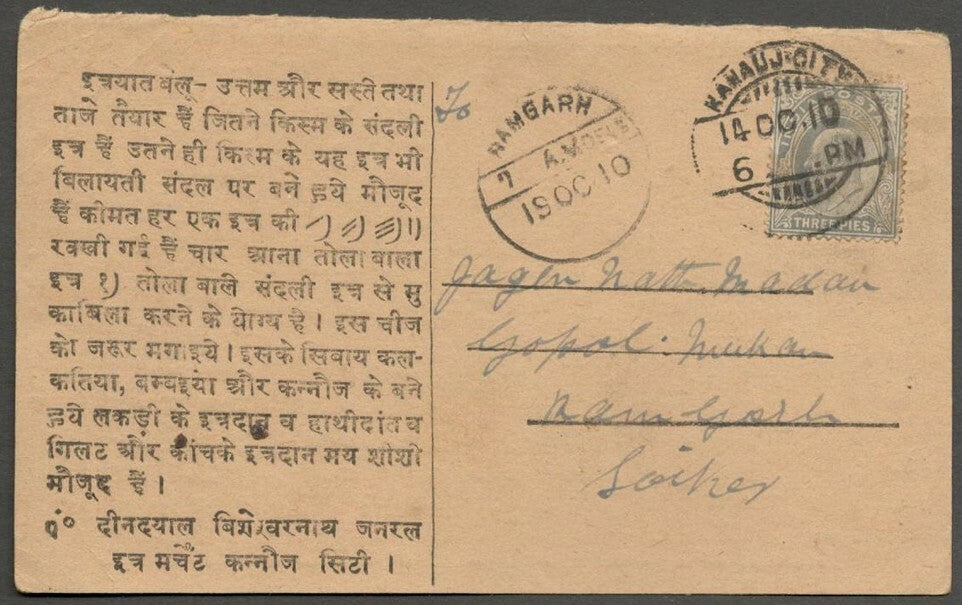 इत्रयात बेलू - उत्तम और सस्ते तथा
ताजे तैयार हैं जितने किस्म के संदली
इत्र हैं उतने ही किस्म के यह इत्र भी
बिलायती संदल पर बने हुये मौजूद
हैं कीमत हर एक इत्र की
रक्खी गई हैं चार आना तोला वाला
इत्र १) तोला बाले संदली इत्र से मु
काबिला करने के योग्य है । इस चीज
को जरूर मगाइये । इसके सिबाय कल-
कतिया, बम्बइया और कन्नौज के बने
हुये लकड़ी के इत्रदान व हाथीदांत व
गिलट और कांचके इत्रदान मय शीशी
मौजूद हैं ।
पं० दीनदयाल बिशेश्वरनाथ जनरल
इत्र मर्चेंट कन्नौज सिटी ।
To
RAMGARH
A.M DELY
19 OC 10
KANAUJ-CITY
14 OC.10
6 PM
THREE PIES
Jagen Nath Madan
Gopal
Ram Garh